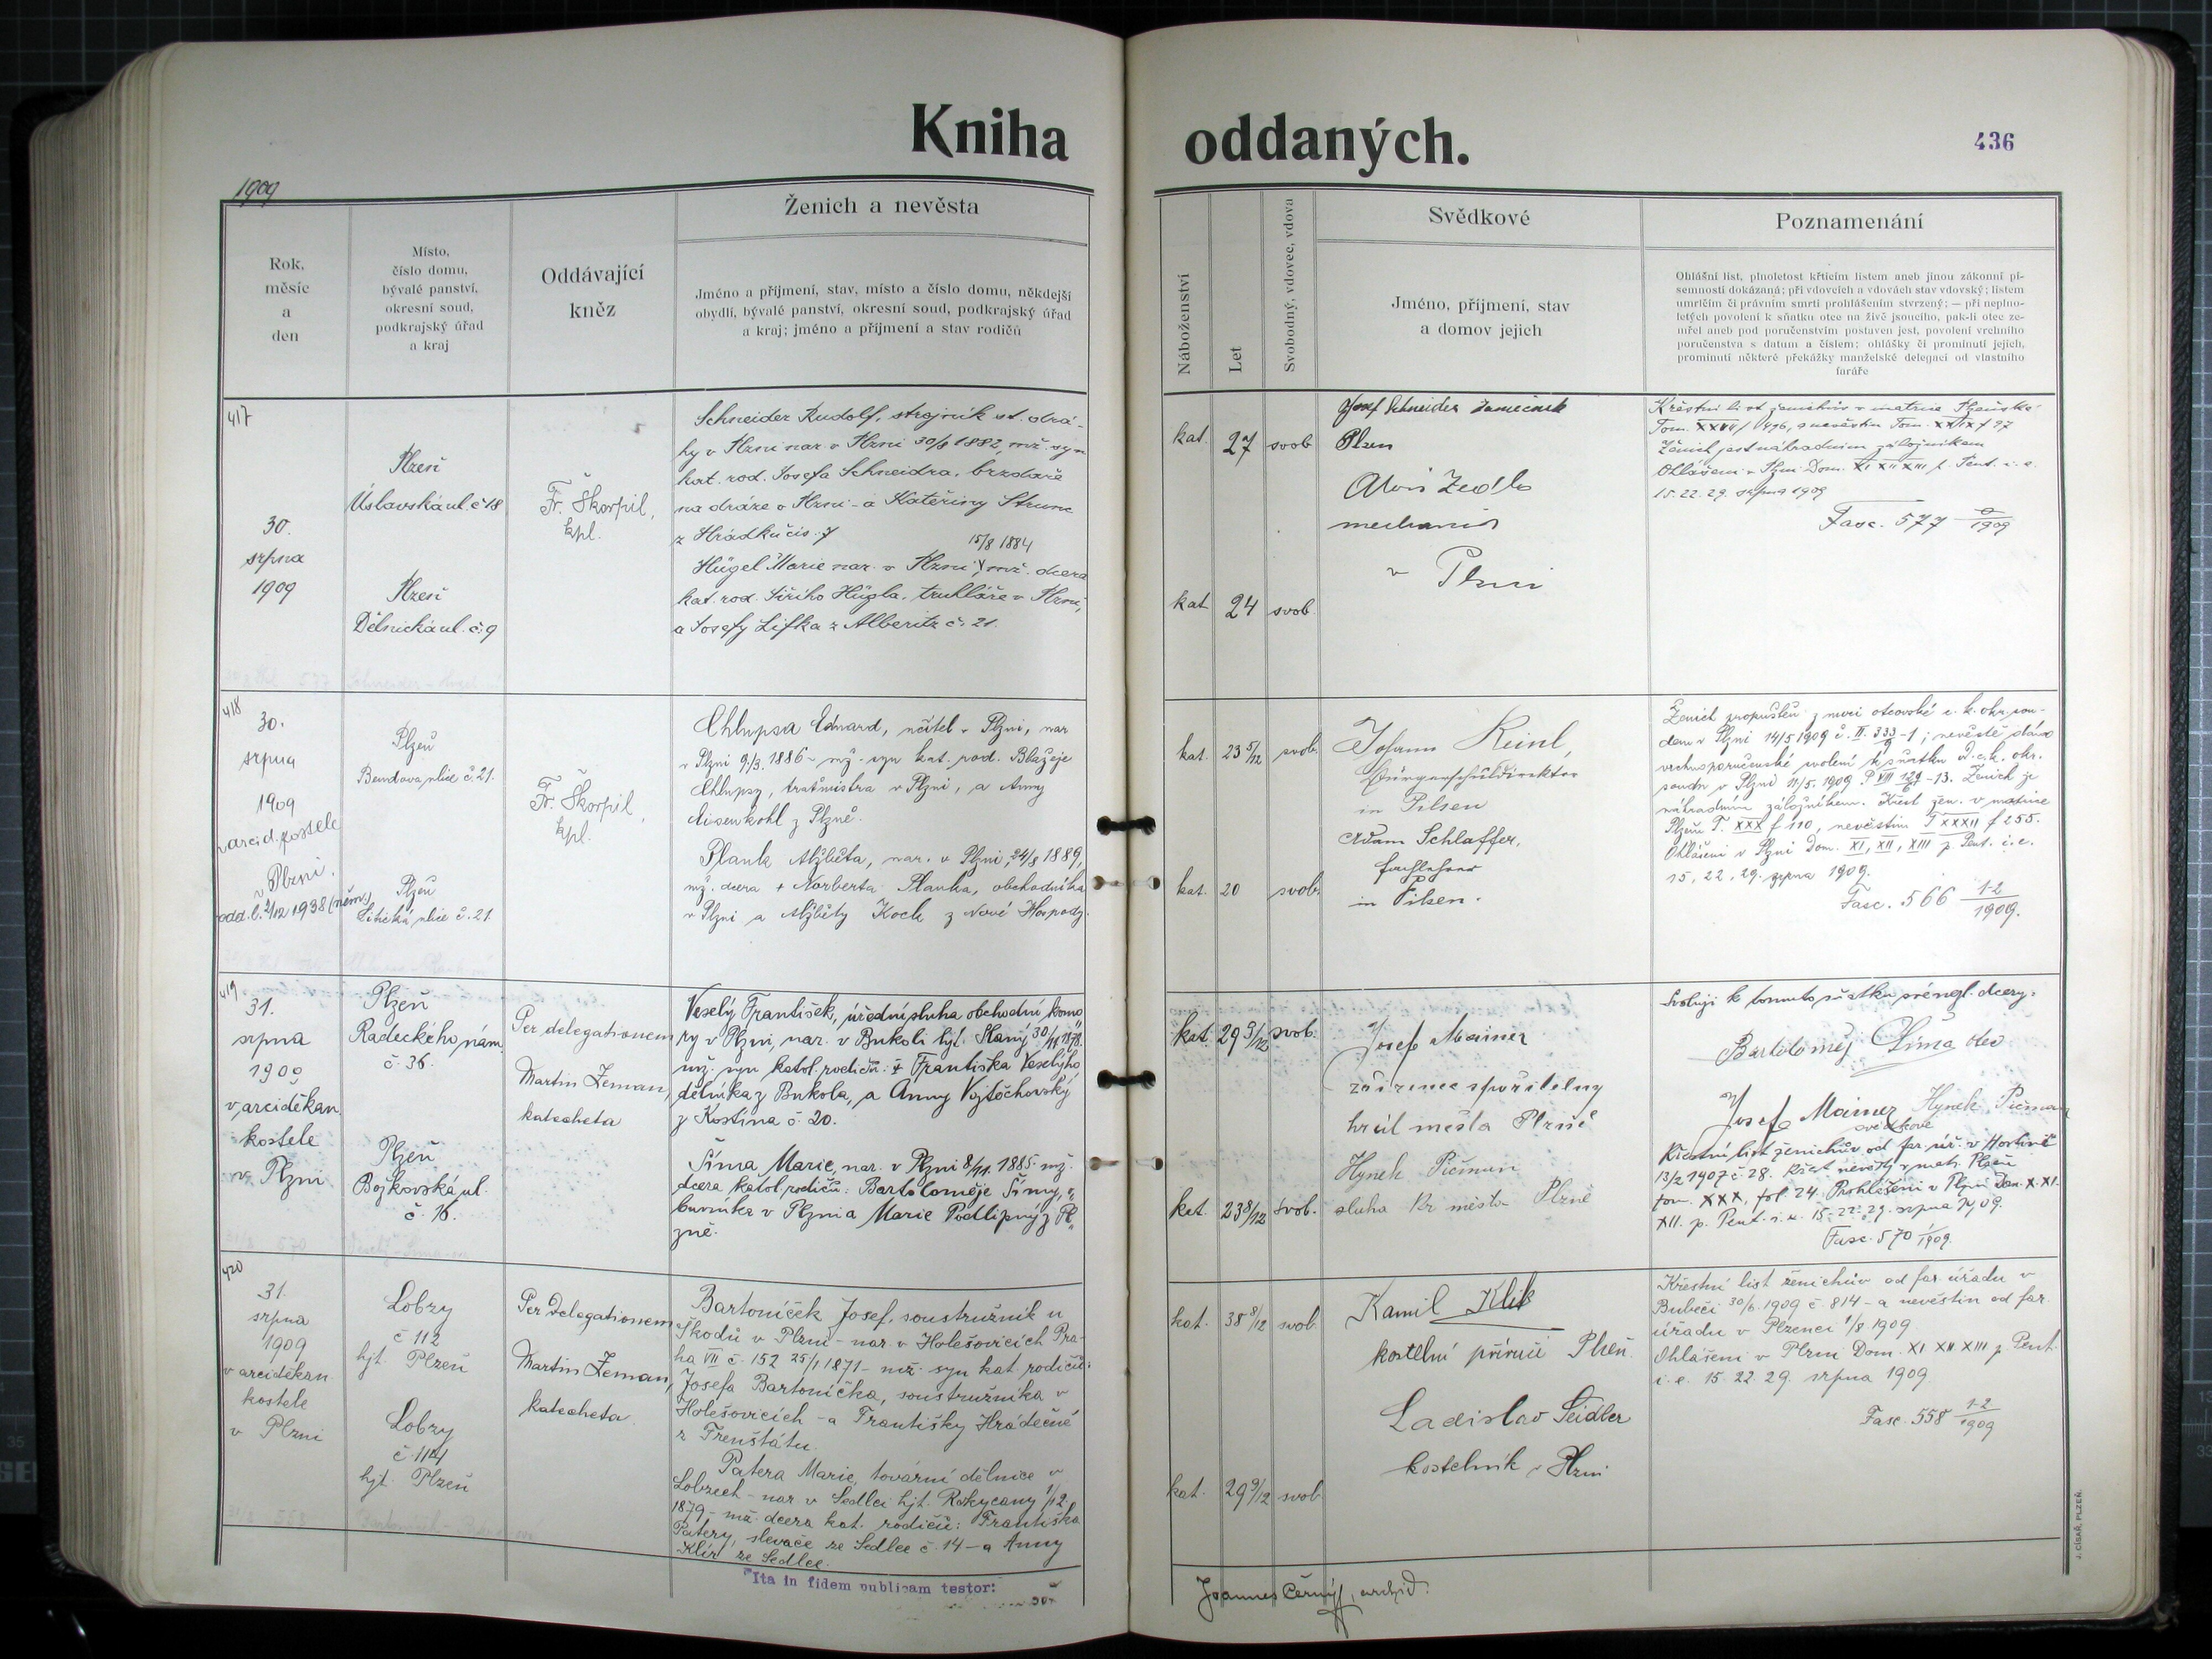 Kniha oddaných.
436
1909
Rok,
měsíc
a
den
Místo,
číslo domu,
bývalé panství,
okresní soud,
podkrajský úřad
a kraj
Oddávající
kněz
Ženich a nevěsta
Jméno a příjmení, stav, místo a číslo domu, někdejší
obydlí, bývalé panství, okresní soud, podkrajský úřad
a kraj; jméno a příjmení a stav rodičů
Náboženství
Let
Svobodný, vdovec, vdova
Svědkové
Jméno, příjmení, stav
a domov jejich
Poznamenání
Ohlášní list, plnoletost křticím listem aneb jinou zákonní pí-
semností dokázaná; při vdovcích a vdovách stav vdovský; listem
umrlčím či právním smrti prohlášením stvrzený; — při neplno-
letých povolení k sňatku otce na živě jsoucího, pak-li otec ze-
mřel aneb pod poručenstvím postaven jest, povolení vrchního
poručenstva s datum a číslem; ohlášky či prominutí jejich,
prominutí některé překážky manželské delegaci od vlastního
faráře
417
30.
srpna
1909
Plzeň
Úslavská ul. č 18
Plzeň
Dělnická ul. č. 9
Fr. Škorpil,
kpl.
Schneider Rudolf, strojník st. drá-
hy v Plzni nar. v Plzni 30/8 1882, mž. syn
kat. rod. Josefa Schneidra, brzdaře
na dráze v Plzni - a Kateřiny Strunc
z Hrádku čís. 7
15/8 1884
Hügel Marie nar. v Plzni, mž. dcera
kat. rod. Jiřího Hügla, truhláře v Plzni,
a Josefy Lifka z Alberitz č. 21.
kat. 27 svob
kat 24 svob.
Josef Schneider zámečník
Plzen
Alois Zedla
mechanik
v Plzni
Křestní list ženichův v matrice Plzeňské
Tom. XXVII f 496, a nevěstin Tom. XXIX f 97
Ženich jest náhradním záložníkem
Ohlášeni v Plzni Dom. XI XII XIII p. Pent. i. e.
15. 22. 29. srpna 1909
Fasc. 577 a/1909
418
30.
srpna
1909
v arcid. kostele
v Plzni.
odd. l. 2/12 1938 (něm.)
Plzeň
Bendova ulice č. 21.
Plzeň
Litická ulice č. 21.
Fr. Škorpil,
kpl.
Chlupsa Edvard, učitel v Plzni, nar
v Plzni 9/3. 1886 - mž. syn kat. rod. Blažeje
Chlupsy, traťmistra v Plzni, a Anny
Eisenkohl z Plzně.
Plank Alžběta, nar. v Plzni, 24/8 1889,
mž. dcera + Norberta Planka, obchodníka
v Plzni a Alžběty Koch z Nové Hospody.
kat. 23 5/12 svob.
kat. 20 svob.
Johann Reinl,
Bürgerschuldirektor
in Pilsen
Adam Schlaffer,
Fachlehrer
in Pilsen.
Ženich propuštěn z moci otcovské c. k. okr. sou-
dem v Plzni 14/5 1909 č. II. 333/9 -1; nevěstě dáno
vrchnoporučenské svolení k sňatku d. c. k. okr.
soudu v Plzni 11/5. 1909. P VII 129/6 -13. Ženich je
náhradním záložníkem. Křest žen. v matrice
Plzeň T. XXX f 110, nevěstin T XXXII f 255.
Ohlášeni v Plzni Dom. XI, XII, XIII p. Pent. i. e.
15, 22, 29. srpna 1909.
Fasc. 566 1-2/1909.
419
31.
srpna
1909
v arciděkan.
kostele
v Plzni
Plzeň
Radeckého nám.
č. 36.
Plzeň
Božkovská ul.
č. 16.
Per delegationem
Martin Zeman,
katecheta
Veselý František, úřední sluha obchodní komo
ry v Plzni, nar. v Bukoli hjt. Slaný 30/11 1879.
mž. syn katol. rodičů: + Františka Veselýho,
dělníka z Bukola, a Anny Vojtěchovský
z Kostina č. 20.
Šíma Marie, nar. v Plzni 8/11. 1885. mž.
dcera katol. rodičů: Bartoloměje Šímy,
v Plzni a Marie Podlipný z Pl-
zně.
kat. 29 9/12 svob.
kat. 23 8/12 svob.
Josef Mainer
zřízenec spořitelny
král města Plzně
Hynek Pičman
sluha kr. města Plzně
Svoluji k tomuto sňatku své nezl. dcery:
Bartoloměj Šíma otec
Josef Mainer Hynek Pičman
svědkové
Křestní list ženichův od far. úř. v Hostíně
13/2 1907 č. 28. Křest nevěsty v matr. Plzeň
tom. XXX, fol. 24. Prohlášeni v Plzni Dom. X. XI.
XII. p. Pent. i. e. 15. 22. 29. srpna 1909.
Fasc. 570 1/1909.
420
31.
srpna
1909
v arciděkan.
kostele
v Plzni
Lobzy
č 112
hjt. Plzeň
Lobzy
č. 114
hjt. Plzeň
Per Delegationem
Martin Zeman,
katecheta.
Bartoníček Josef, soustružník u
Škodů v Plzni - nar. v Holešovicích Pra-
ha VII č. 152 25/1 1871 - mž. syn kat. rodičů:
Josefa Bartoníčka, soustružníka v
Holešovicích - a Františky Hrádečné
z Frenštátu.
Patera Marie, tovární dělnice v
Lobzech - nar v Sedlci hjt. Rokycany 1/12
1879 - mž. dcera kat. rodičů: Františka
Patery, slevače ze Sedlce č. 14 - a Anny
Klír ze Sedlce.
kat. 38 8/12 svob
kat. 29 9/12 svob
Kamil Klik
kostelní příručí Plzeň.
Ladislav Seidler
kostelník v Plzni
Křestní list ženichův od far. úřadu v
Bubeči 30/6. 1909 č. 814 - a nevěstin od far.
úřadu v Plzenci 1/8 1909
Ohlášeni v Plzni Dom. XI XII XIII p. Pent.
i. e. 15. 22. 29. srpna 1909.
Fasc. 558 1-2/1909
Ita in fidem publicam testor:
Joannes Černý, archid.
J. CÍSAŘ, PLZEŇ.